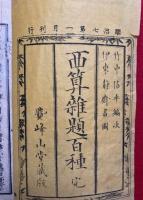 明治七第一月刊行
竹中信平編次
伊東靜齋画圖
西算雜題百種 完
山堂藏版